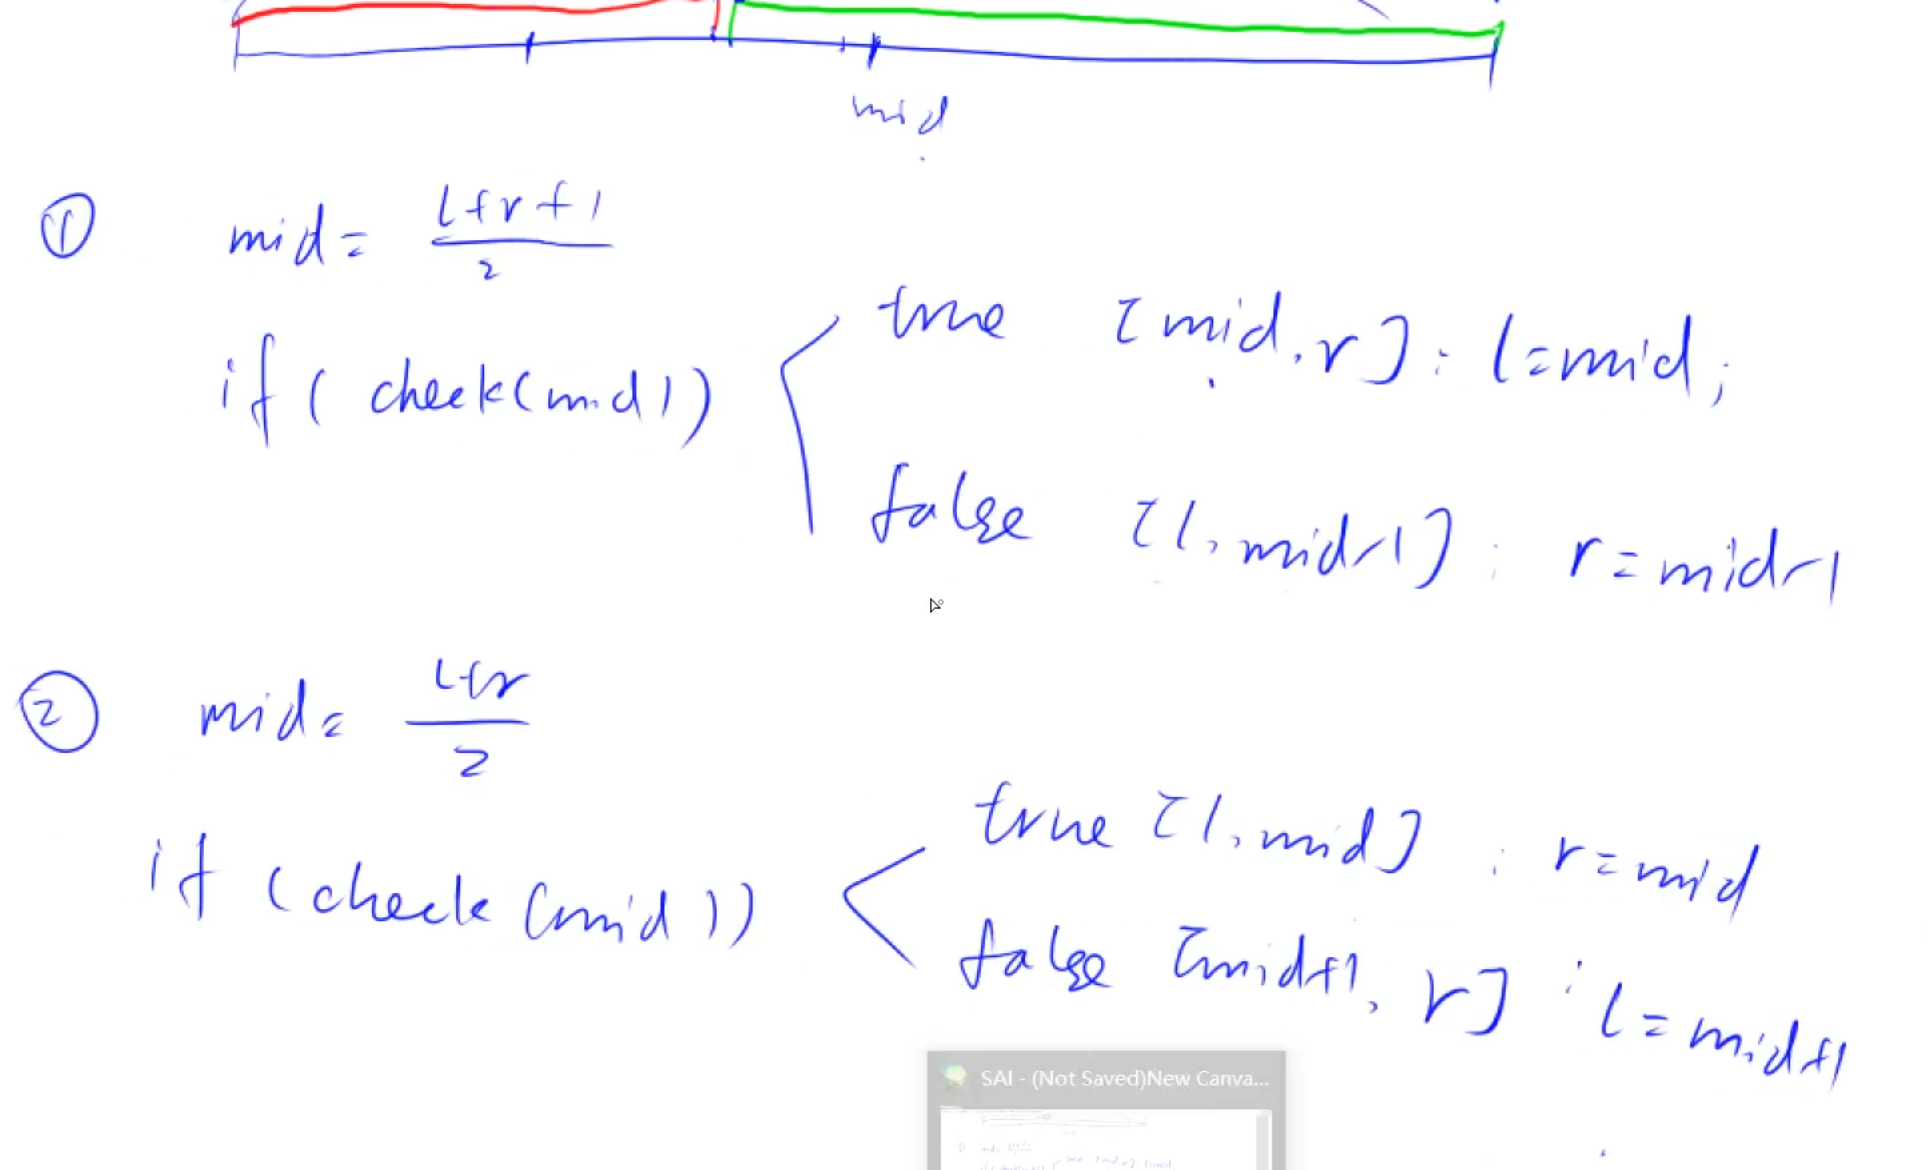 mid
① mid = (l+r+1)/2
if ( check(mid))
true [mid, r] : l=mid;
false [l, mid-1] : r=mid-1
② mid = (l+r)/2
if (check (mid))
true [l, mid] : r=mid
false [mid+1, r] : l=mid+1
SAI - (Not Saved)New Canva...